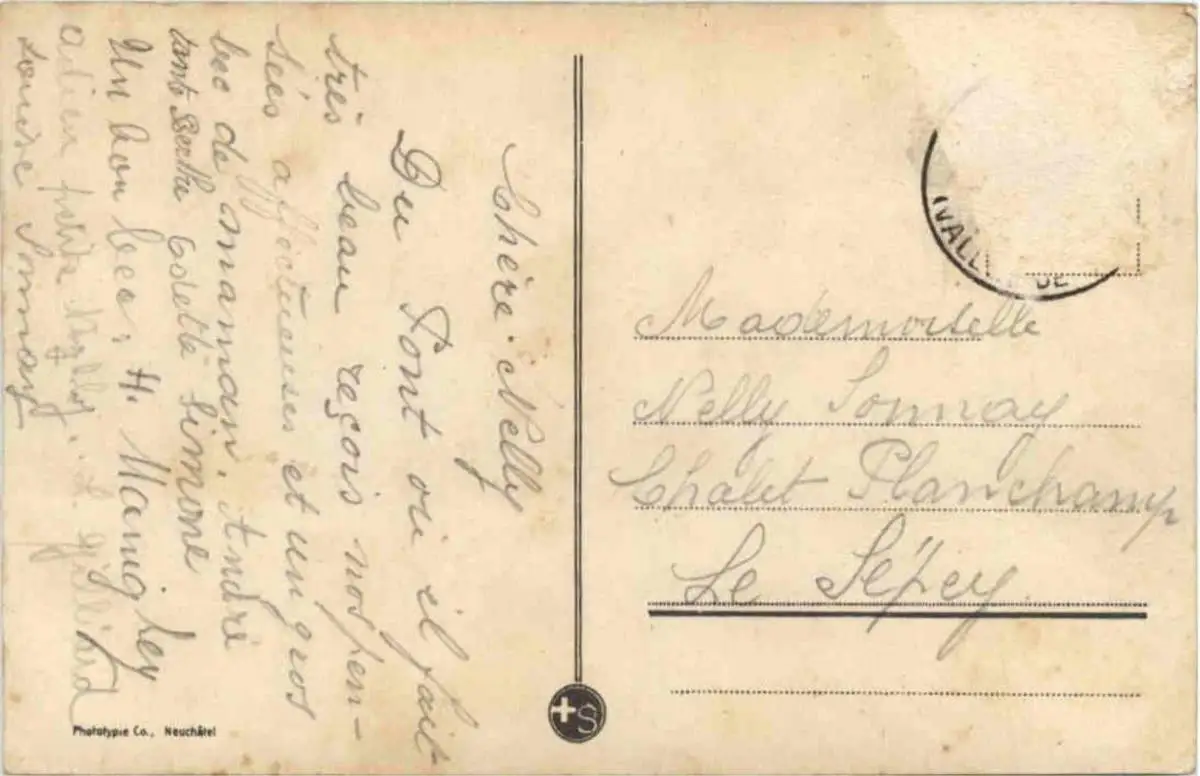 Chère Nelly
Du Pont où il fait
très beau reçois nos pen-
sées affectueuses et un gros
bec de maman, André
tante Berthe Odette Simone
Un bon bec, H.
adieu petite Nelly. L. Gilliard
Louise Sonnay
Phototypie Co., Neuchâtel
S
(VALL DE
Mademoiselle
Nelly Sonnay
Chalet Planchamp
Le Sépey